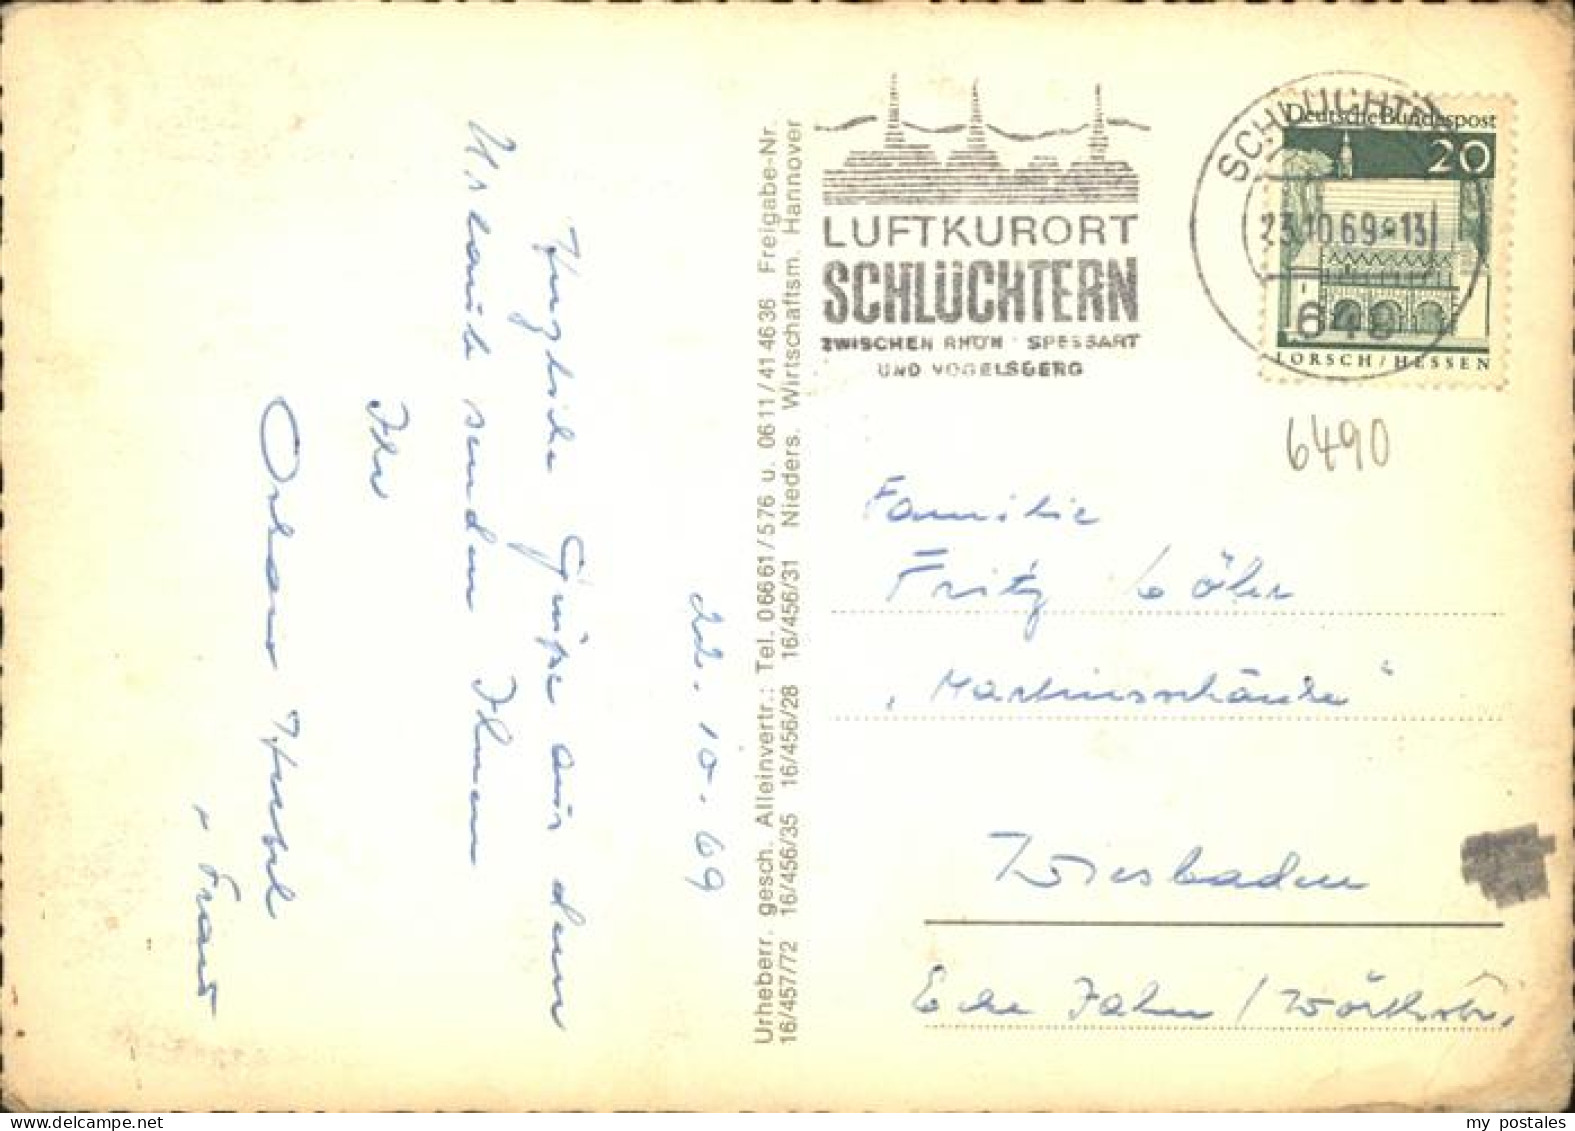 22.10.69
Herzliche Grüße aus dem
Urlaub senden Ihnen
Ihr
" Frau
Urheberr. gesch. Alleinvertr.: Tel. 06661/576 u. 0611/414636 Freigabe-Nr.
16/457/72 16/456/35 16/456/28 16/456/31 Nieders. Wirtschaftsm. Hannover
LUFTKURORT
SCHLÜCHTERN
ZWISCHEN RHÖN · SPESSART
UND VOGELSBERG
SCHLÜCHTERN
23.10.69-13
649
Deutsche Bundespost
20
LORSCH / HESSEN
6490
Familie
Fritz
„Martinsschänke“
Wiesbaden
Ecke Jahn / Wörthstr.
my postales